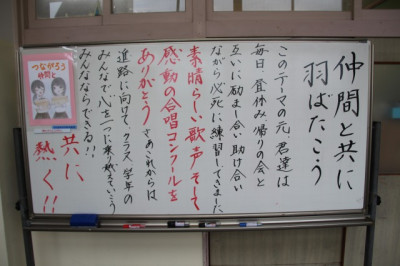 仲間と共に
羽ばたこう
このテーマの元、君達は
毎日、昼休み、帰りの会と
互いに励まし合い、助け合い
ながら必死に練習してきました
素晴らしい歌声そして
感動の合唱コンクールを
ありがとう
さあこれからは
進路に向けて、クラス、学年の
みんなで心を一つに乗り越えていこう
みんなならできる!!
共に
熱く!!
つながろう
仲間と